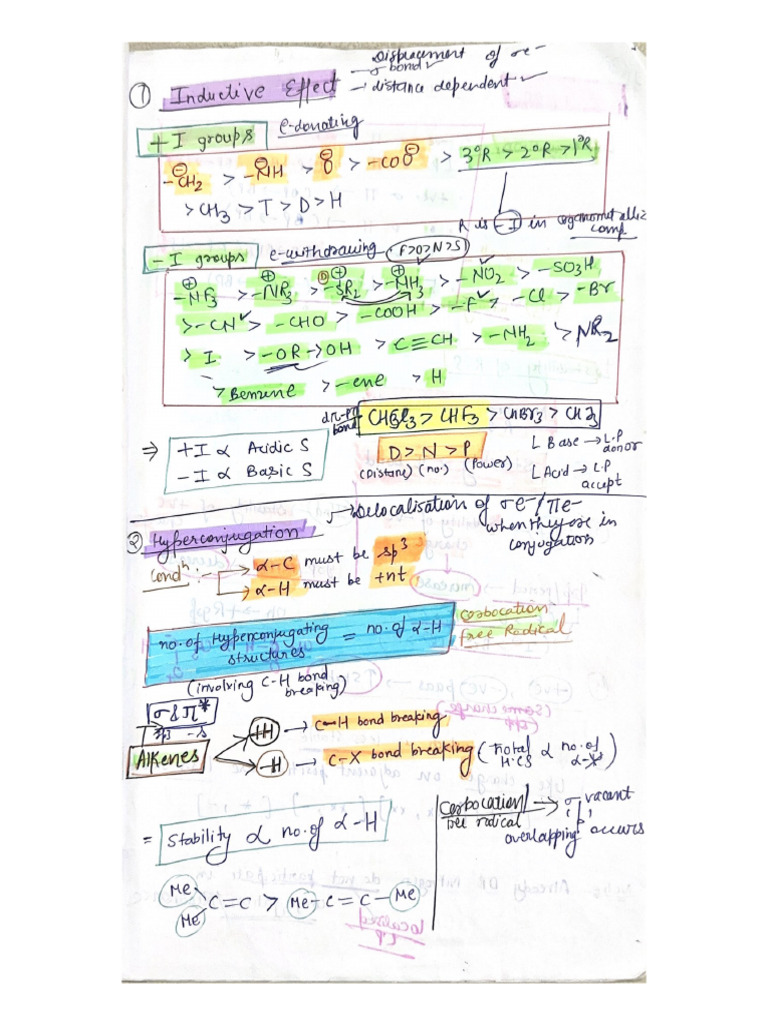 Displacement of σe-
bond ✓
① Inductive Effect — distance dependent ✓
+I groups e-donating
-CH2⊖ > -NH⊖ > O⊖ > -COO⊖ > 3°R > 2°R > 1°R
> CH3 > T > D > H
R is -I in organometallic
comp
-I groups e-withdrawing F>O>N>S
-NF3⊕ > -NR3⊕ > -SR2⊕ > -NH3⊕ > -NO2 > -SO3H
> -CN > -CHO > -COOH > -F > -Cl > -Br
> I > -OR -> OH > C≡CH > -NH2 > NR2
> Benzene > -ene > H
bond CHCl3 > CHF3 > CHBr3 > CHI3
⇒ +I ∝ Acidic S
-I ∝ Basic S
D > N > P
(Distance) (no.) (Power)
L Base → L.P
donor
L Acid → L.P
accept
② Hyperconjugation → Delocalisation of σe-/πe-
when they are in
conjugation
Condn :- → α-C must be sp3
→ α-H must be +nt
no. of Hyperconjugating
structures = no. of α-H
Carbocation
free Radical
(involving C-H bond
breaking)
σ & π*
Alkenes
+H → C-H bond breaking
-H → C-X bond breaking (Total ∝ no. of
H.C.S α-X)
Carbocation/
free radical → σ, vacant
p
overlapping occurs
= Stability ∝ no. of α-H
Me
C=C > Me-C=C-Me
Me